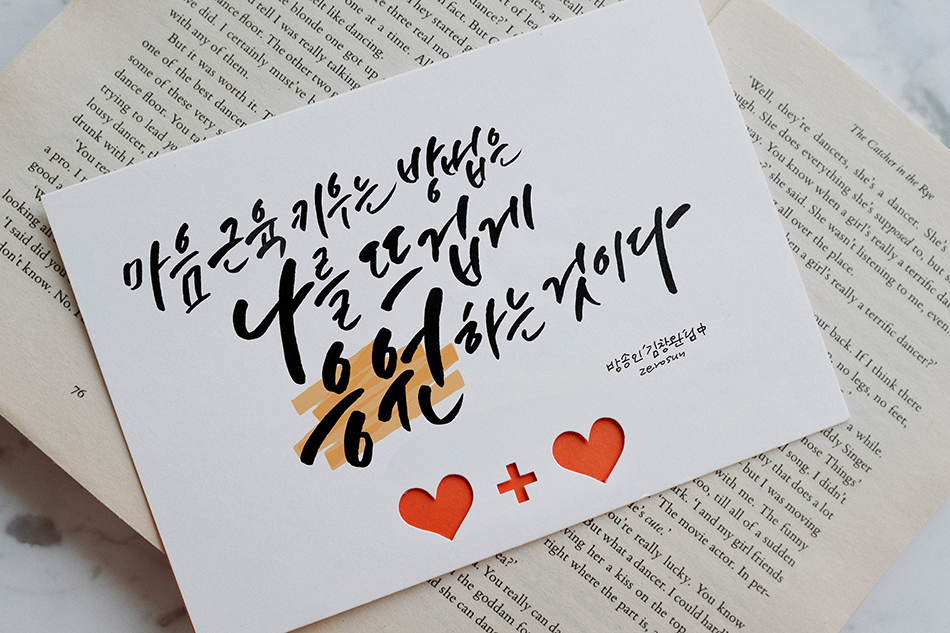 마음 근육 키우는 방법은
나를 뜨겁게
응원하는 것이다
방송인 '김창완'님 中
zerosun
felt like dancing.
one at a time. All
these three real
did, I certainly must've
dance floor. The other two
the blonde one got up
tell them I was really talking
with any of them.
But it was worth it.
one of the best dancers
some of these very
dance floor. You
lousy dancer,
trying to lead you
drunk with
a pro. I
good
'You
looking
'I said did you
don't know. No, I
76
The Catcher in the Rye
'Well, they're dancers, she's a dancer. She's
She does everything she's supposed to, but she
You know when a girl's really a terrific dancer?'
she said. She wasn't listening to me, even.
all over the place.
a girl's really a terrific dancer?'
back. If I think there
no legs, no feet,
a while.
Singer
Things'
song. I didn't
that does a lot
but I was moving
with me. The funny
too, till all of a sudden
'I and my girl friends
The movie actor. In per-
You're really lucky. You know
But what a dancer. I could
her a kiss on the top
right where the part is,
You really can
the goddam
she can